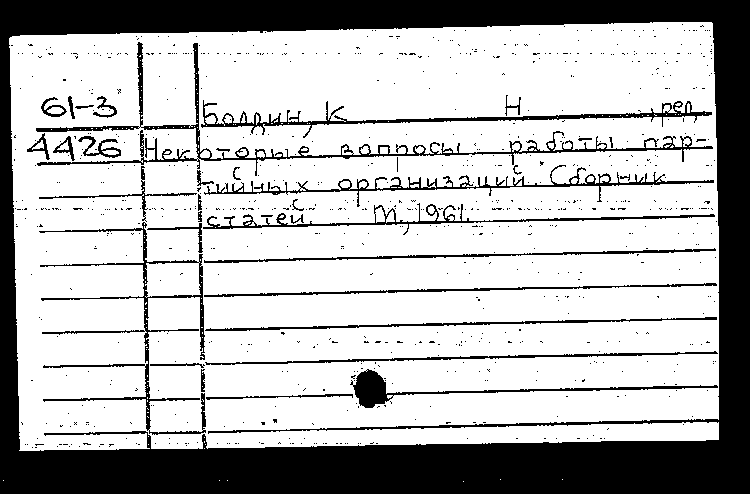 61-3 Болдин, К Н , ред.
4426 Некоторые вопросы работы пар-
тийных организаций. Сборник
статей. М., 1961.